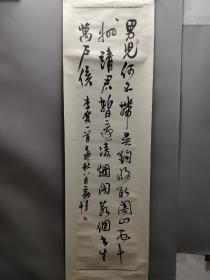 男兒何不帶吴鈎收取關山五十
州請君暫上凌烟閣若個書生
萬户侯 李賀一首